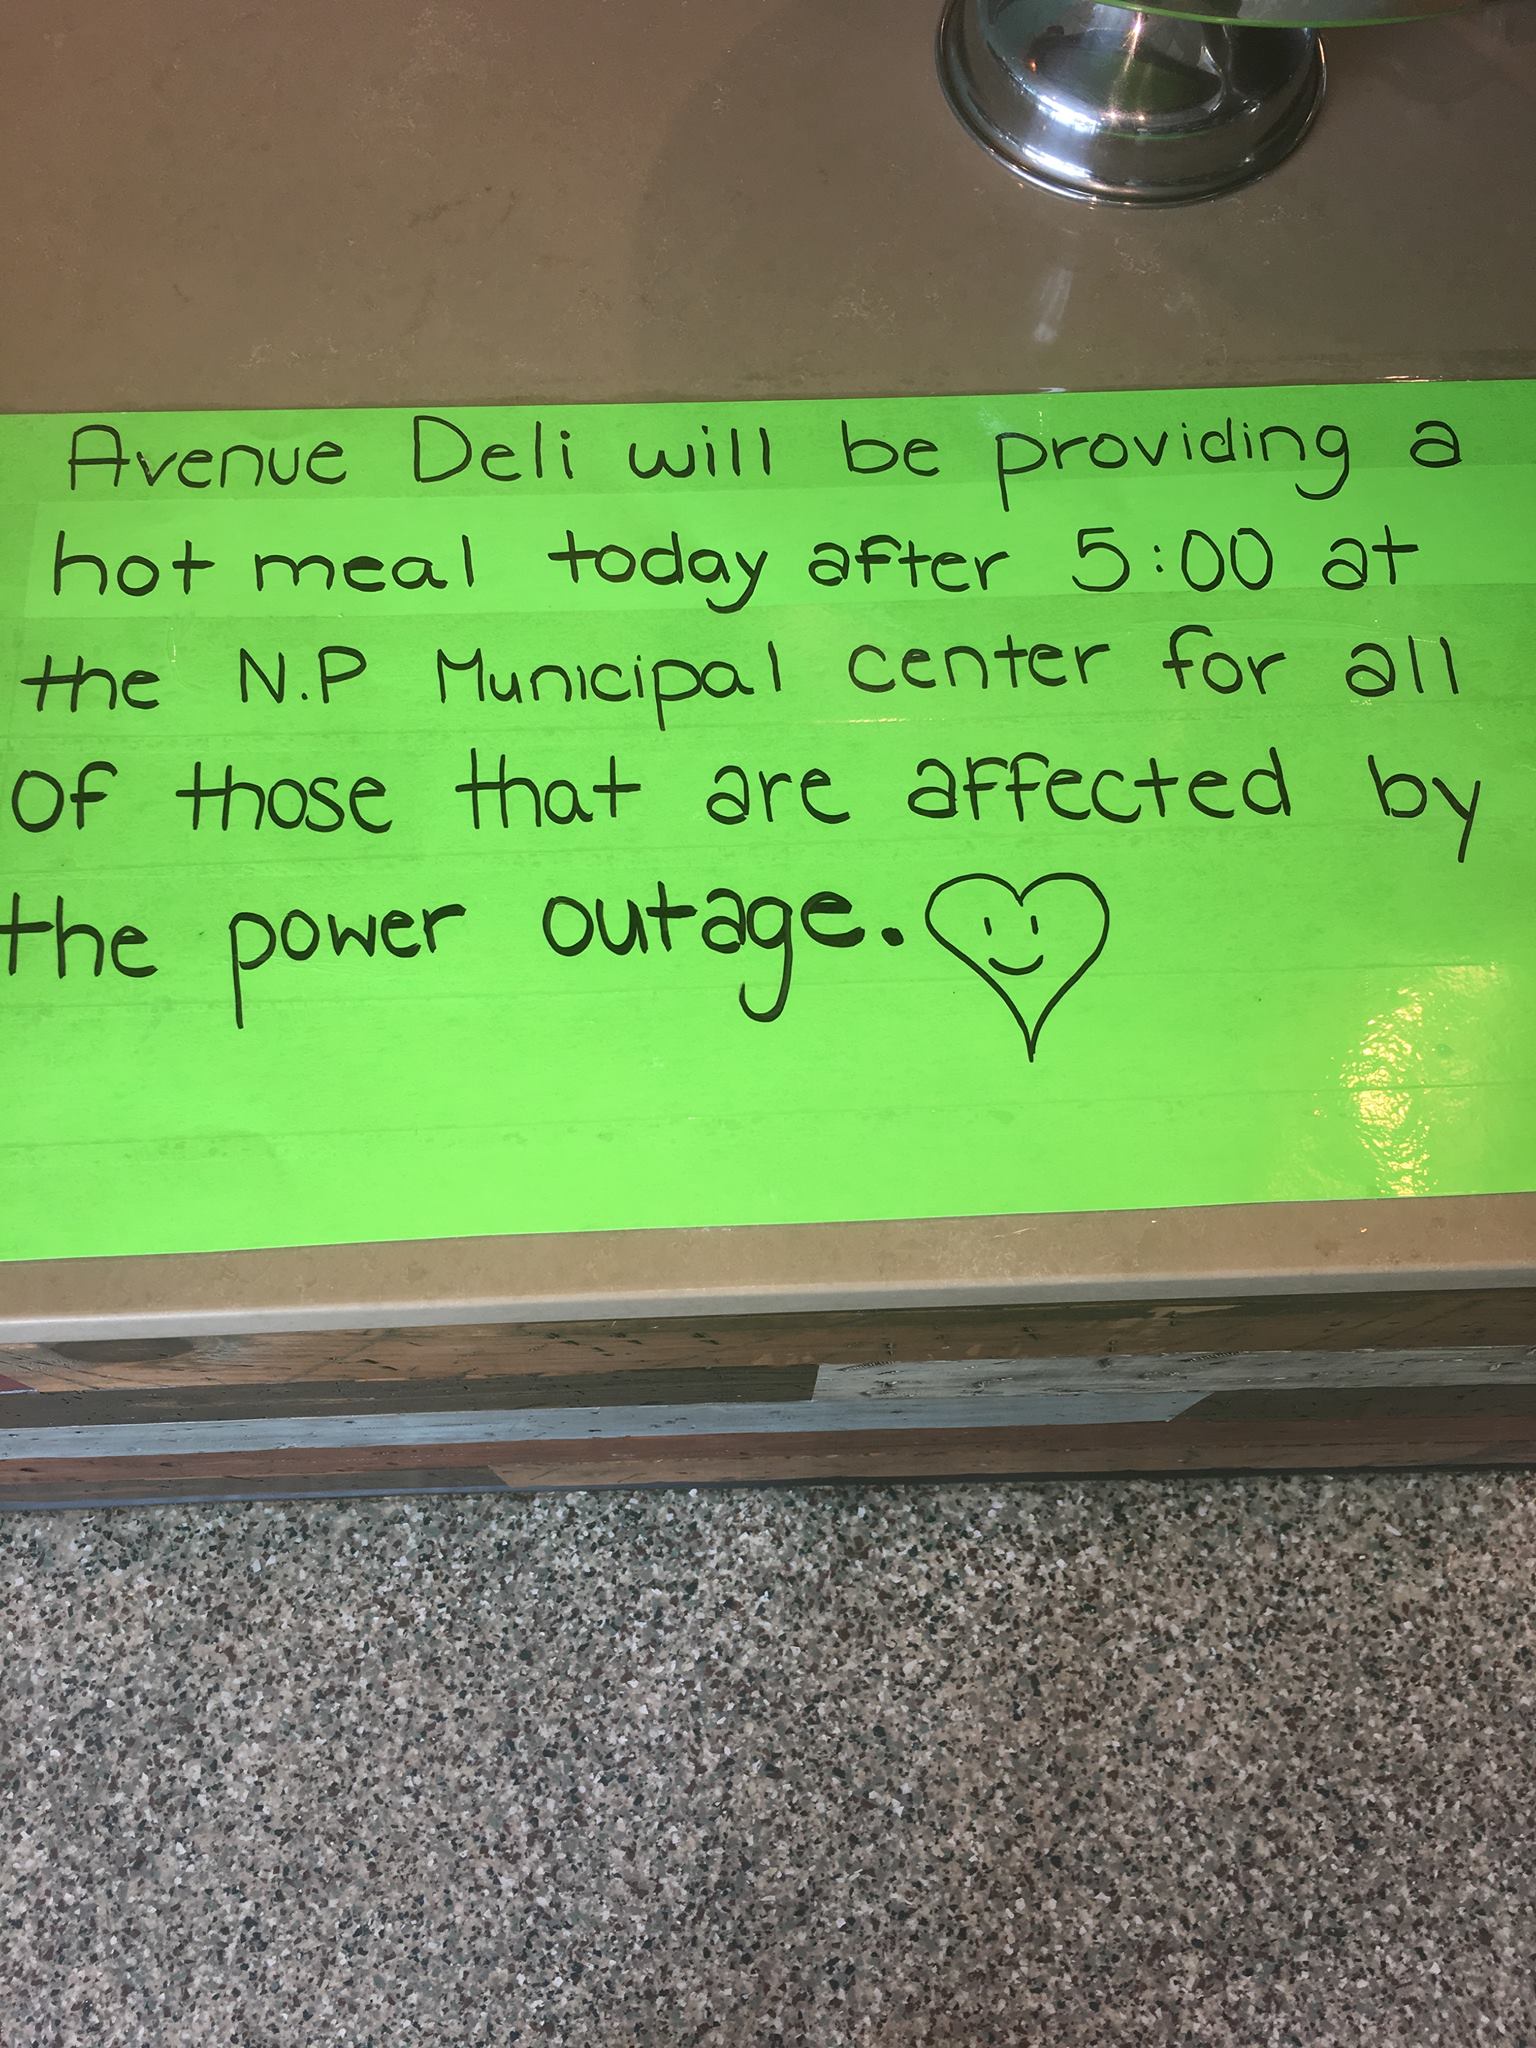 Avenue Deli will be providing a
hot meal today after 5:00 at
the N.P Municipal center for all
of those that are affected by
the power outage.